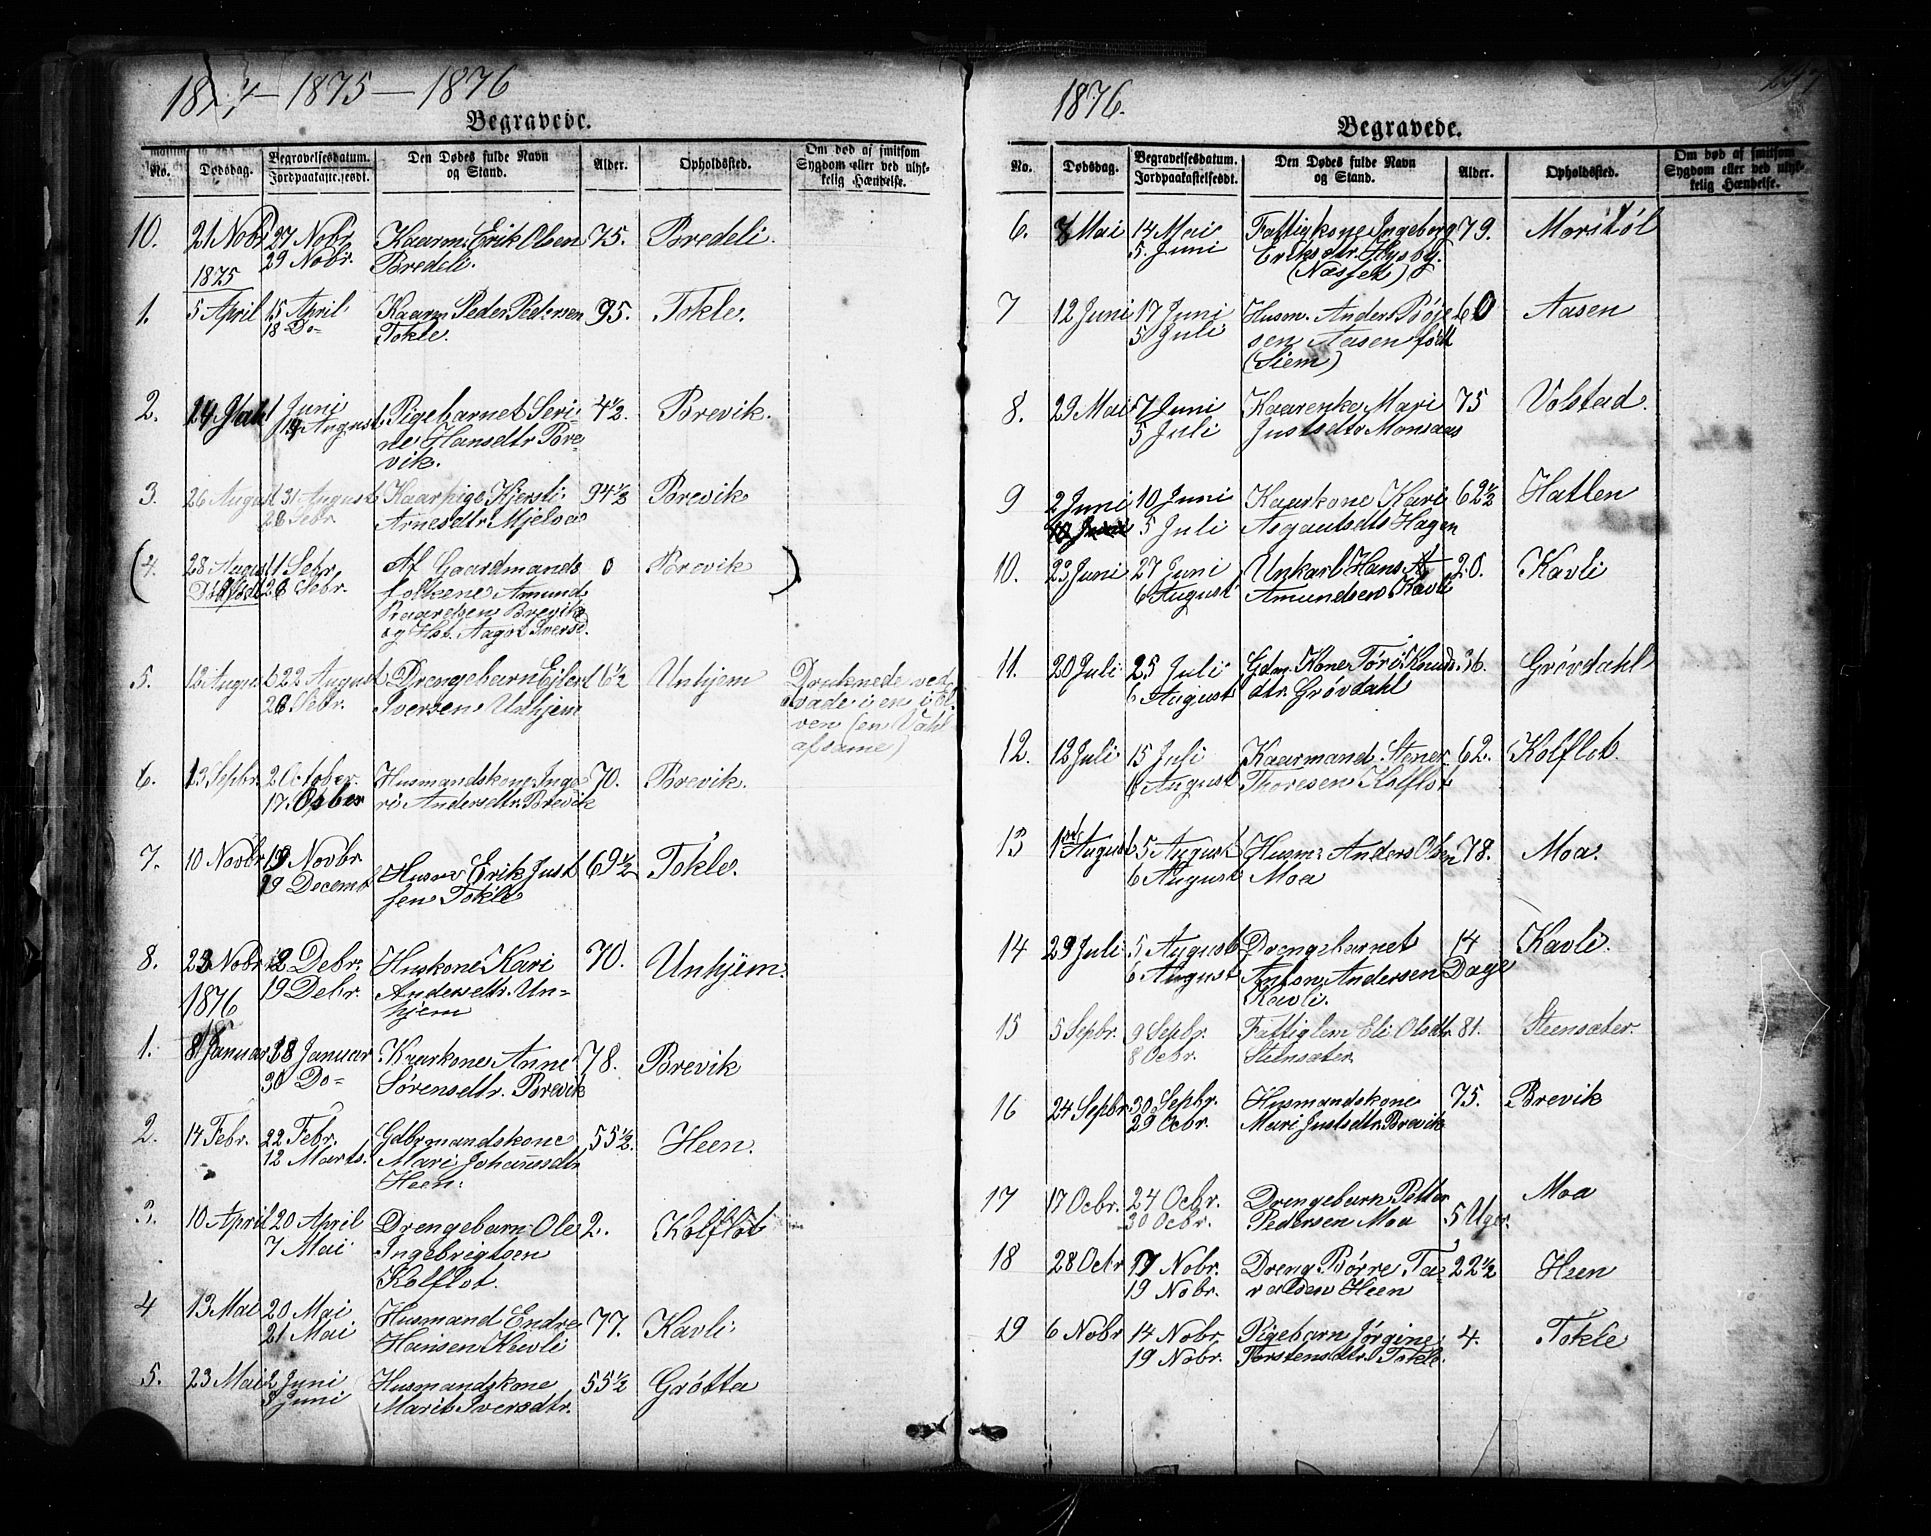 1874 — 1875 — 1876
Begravede.
No. Dødsdag. Begravelsesdatum. Jordpaakastelsesdt. Den Dødes fulde Navn og Stand. Alder. Opholdssted. Om død af smitsom Sygdom eller ved ulyk- kelig Hændelse.
10. 21 Nobr 27 Nobr Kaarm. Erik Olsen 75. Bredeli.
29 Nobr. Bredeli.
1875
1. 5 April 15 April Kaarm Peder Pedersen 95. Tokle.
18 Do- Tokle.
2. 1 Juni Pigebarnet Seri- 4½. Brevik.
19 August ne Hansdtr Bre-
vik.
3. 26 August 31 August Kaarpige Kjersti 94½ Brevik
26 Sebr. Arnesdtr Mjelva
(4. 28 August 1 Sebr Af Gaardmands 0 Brevik )
Dødfødt 26 Sebr. folkene Amund
Baardsen Brevik
og Hst. Aagot Iversd.
5. 12 August 22 August Drengebarn Ejler 6½ Unhjem Druknede ved
26 Sebr. Iversen Unhjem vade i en i El-
ven (en
af same)
6. 23 Sepbr. 2 October Husmandskone Inge- 70. Brevik.
17 Ocober ri Andersdtr. Brevik
7. 10 Novbr 19 Novbr Husm Erik Just 69½ Tokle.
19 Decemb sen Tokle
8. 23 Nobr 2 Debr. Huskone Kari 70. Unhjem.
19 Debr. Andersdtr. Un-
1876 hjem
1. 8 Januar 18 Januar Kaarkone Anne 78. Brevik
30 Do- Sørensdtr. Brevik
2. 14 Febr. 22 Febr. Gdbrmandskone 55½. Heen.
12 Marts. Mari Johannsdtr
Heen.
3. 10 April 20 April Drengebarn Ole 2. Kolflot
7 Mai Ingebrigtsen
Kolflot.
4 13 Mai 20 Mai Husmand Endre 77. Kavli
21 Mai Hansen Kavli
5. 23 Mai 2 Juni Husmandskone 55½ Grøtta
5 Juni Marit Iversdtr.
1876.
Begravede.
No. Dødsdag. Begravelsesdatum. Jordpaakastelsesdt. Den Dødes fulde Navn og Stand. Alder. Opholdssted. Om død af smitsom Sygdom eller ved ulyk- kelig Hændelse.
6. 8 Mai 14 Mai Fattigkone Ingeborg 79. Morstøl
5. Juni Eriksdtr. Hysby.
(Næsset)
7 12 Juni 17 Juni Husm. Anders Bøje 60 Aasen
5 Juli sen Aasen født
(Siem)
8. 29 Mai 7 Juni Kaarenke Mari 75 Volstad.
5 Juli Justsdtr Monsaas
9 2 Juni 10 Juni Kaarkone Kari 62½ Hatlen
5 Juli Asgautsdtr Hagen
10. 23 Juni 27 Juni Unkarl Hans A 20. Kavli
6 August Amundsen Kavli
11. 20 Juli 25 Juli Gdm. Kone Tøri Knuds 36. Grøvdahl
6 August dtr. Grøvdahl
12. 12 Juli 15 Juli Kaarmand Stener 62. Kolflot.
6 August Thoresen Kolflot
13 1ste August 5 August Husm. Anders Olsen 78. Moa.
6 August Moa
14 29 Juli 5 August Drengebarnet 14 Kavli.
6 August Anton Andersen Dage
Kavli.
15 5 Sepbr. 9 Sepbr. Fattiglem Eli Olsdtr 81. Steensæter.
8 Ocbr. Stensæter
16 24 Sepbr 30 Sepbr. Husmandskone 75. Brevik
29 Ocbr. Mari Justsdtr. Brevik
17 17 Ocbr. 24 Ocbr. Drengebarn Petter Moa
30 Ocbr. Pedersen Moa 5 Uger.
18 28 Octr 17 Nobr. Dreng Børre Ta- 22½ Heen
19 Nobr. raldsen Heen
19 6 Nobr 14 Nobr. Pigebarn Jørgine 4. Tokle
19 Nobr. Torstensdtr. Tokle.